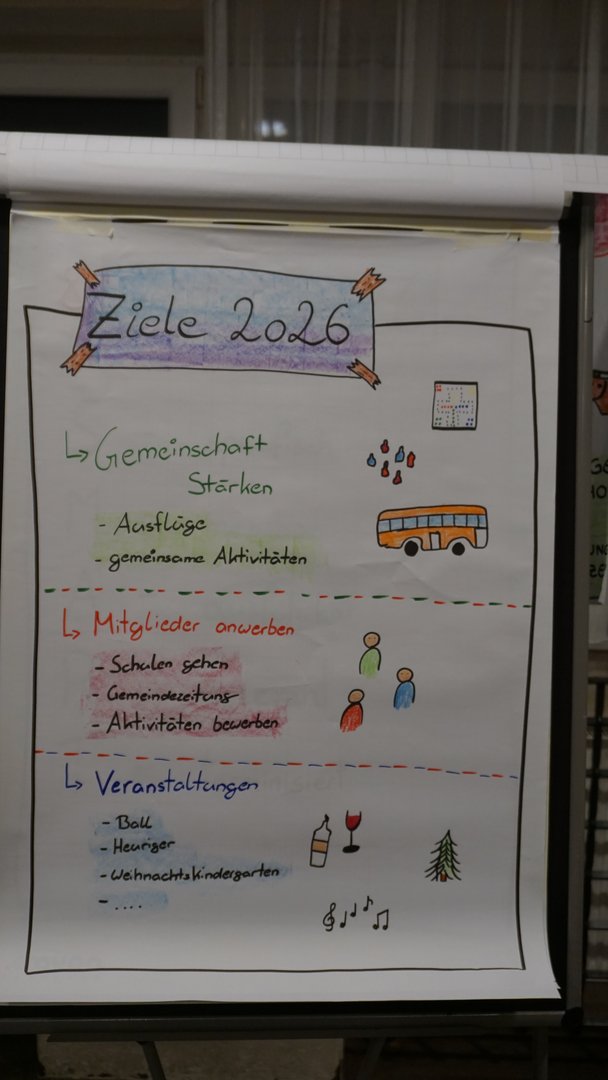 Ziele 2026
↳ Gemeinschaft
Stärken
- Ausflüge
- gemeinsame Aktivitäten
↳ Mitglieder anwerben
- Schulen gehen
- Gemeindezeitung
- Aktivitäten bewerben
↳ Veranstaltungen
- Ball
- Heuriger
- Weihnachtskindergarten
- ....